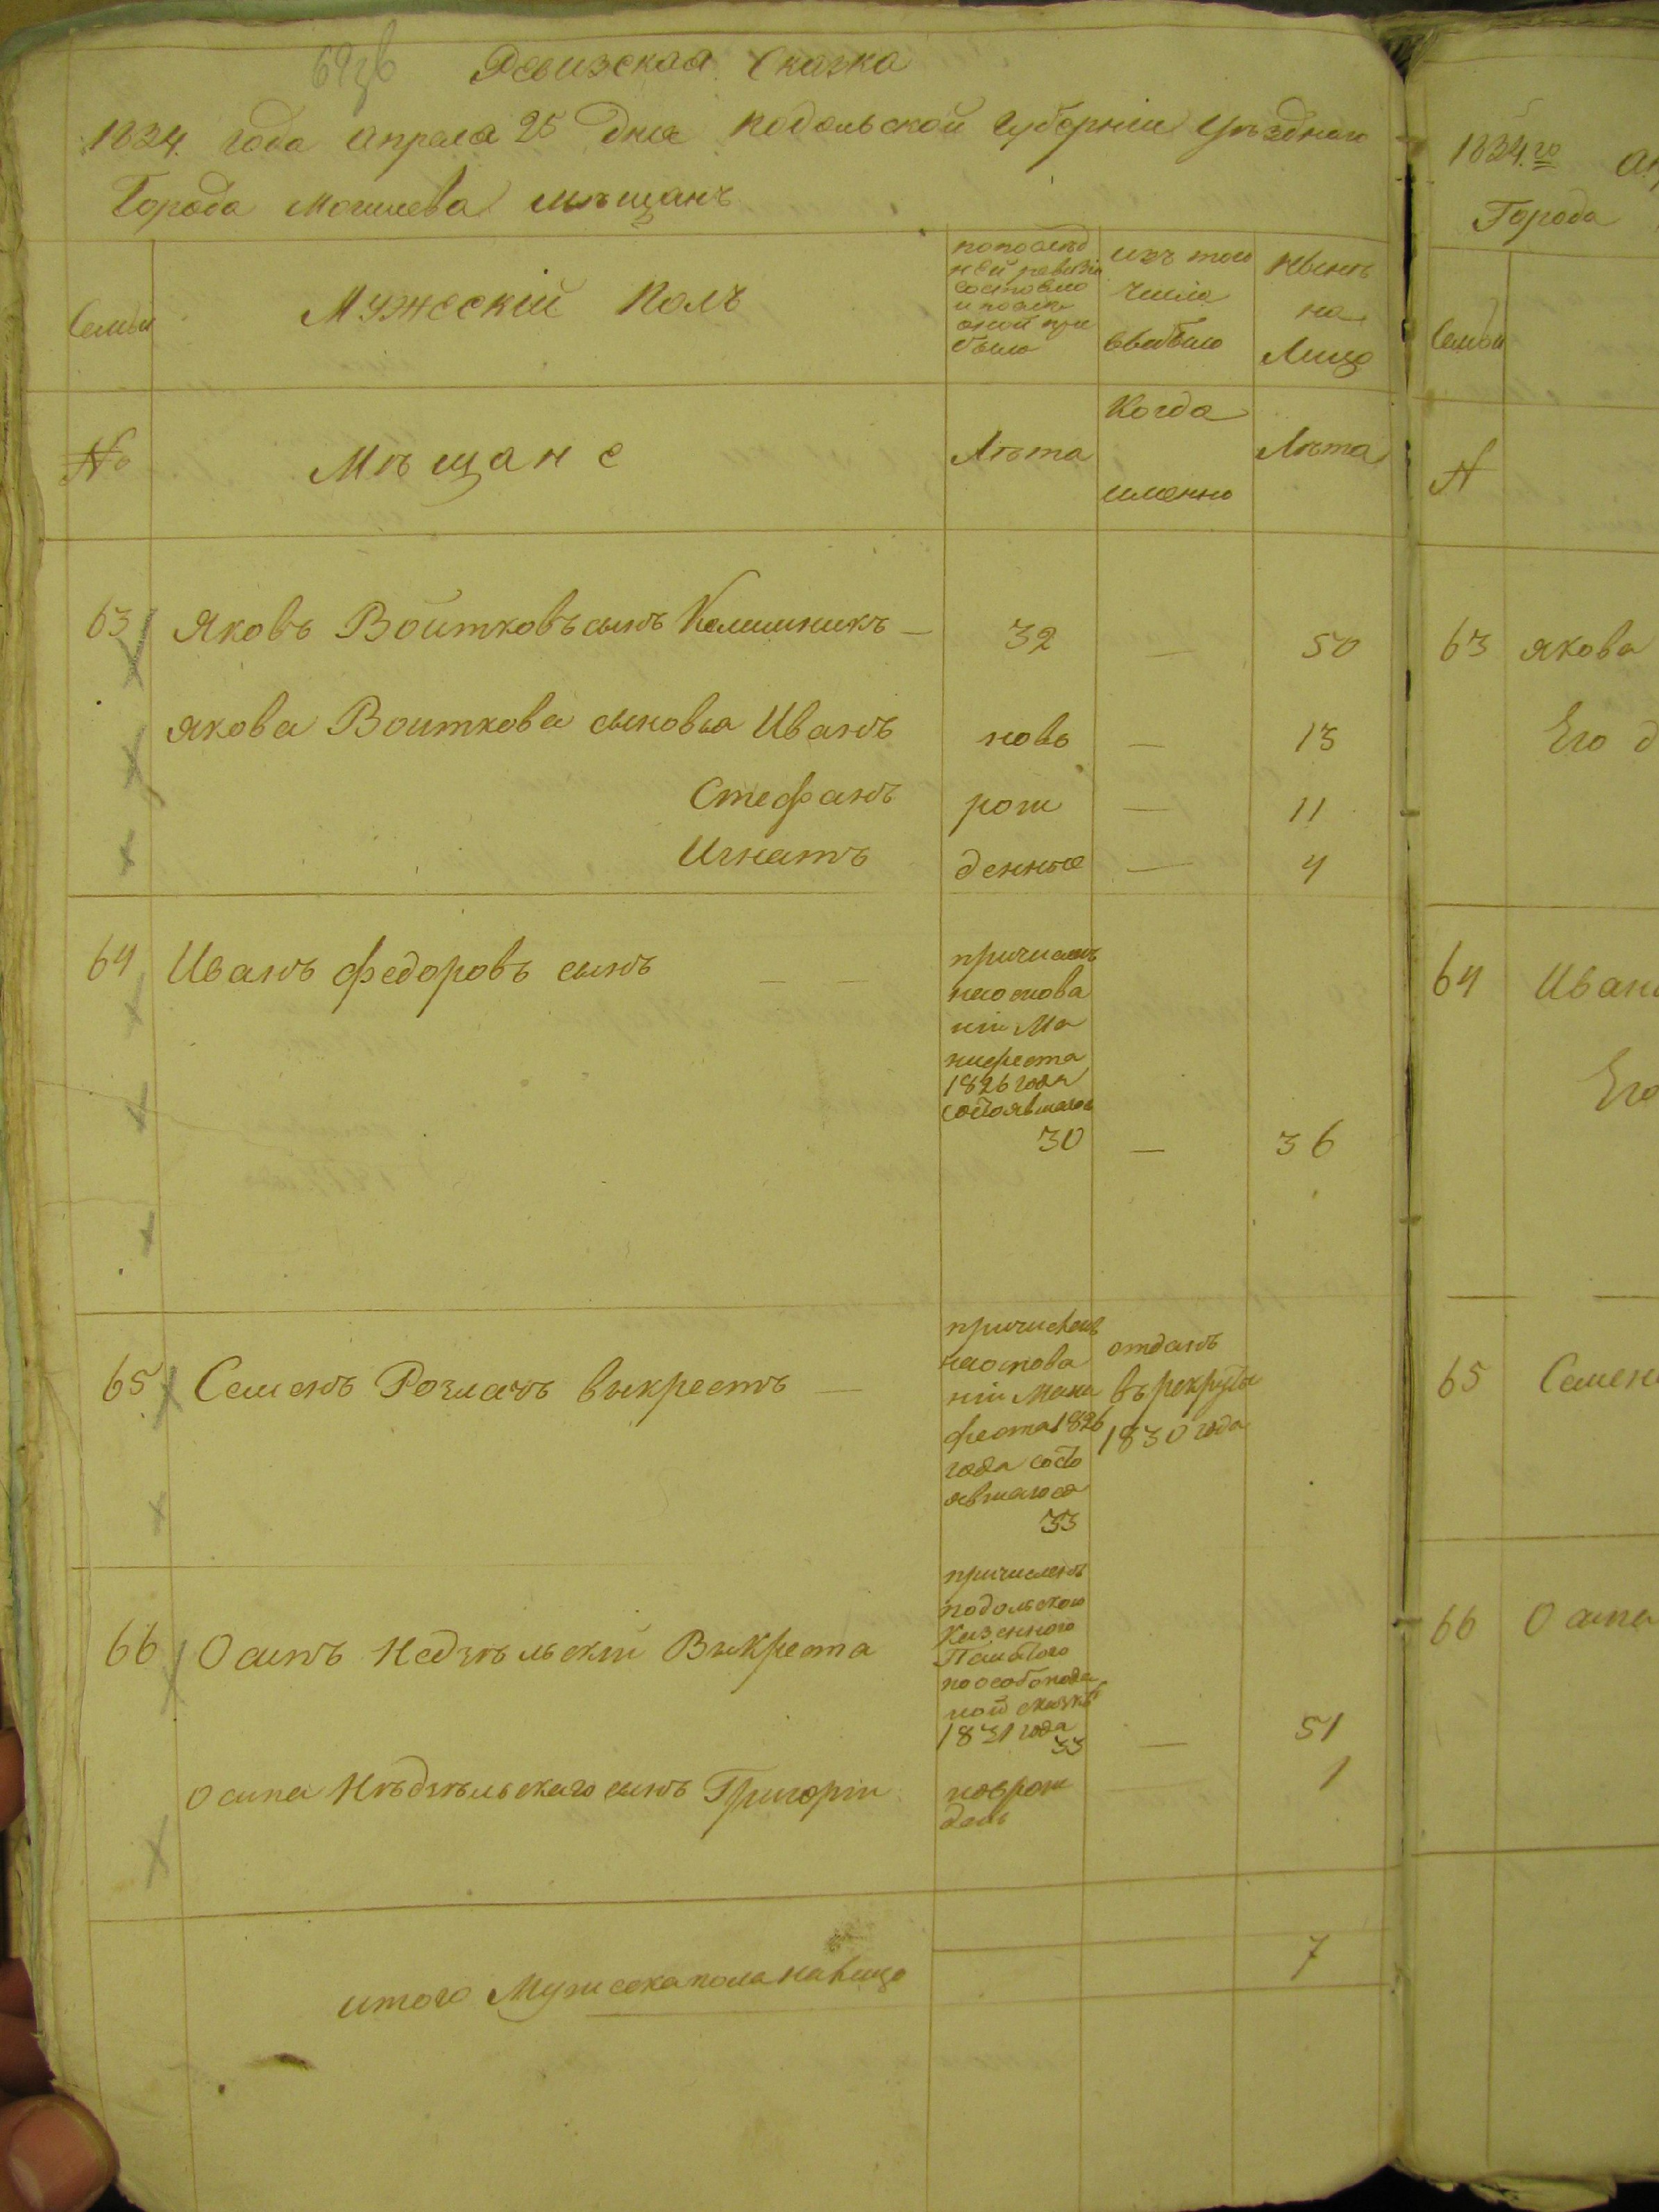 Ревизская Сказка
1834. года Апреля 25 Дня Подольской Губерніи Уѣзднаго
Города Могилева Мѣщанъ
Семьи
Мужескій Полъ
попослѣд
ней ревизіи
состояло
и послѣ
оной при
было
изъ того
числа
выбыло
Нынѣ
на
Лицо
№
Мѣщане
Лѣта
Когда
именно
Лѣта
63 Яковъ Войтковъ сынъ Калишникъ — 32 — 50
Якова Воиткова сыновья Иванъ ново — 13
Стефанъ рож — 11
Игнатъ денные — 4
64 Иванъ Федоровъ сынъ — —
причисленъ
наоснова
ніи Ма
нифеста
1826 года
состоявшагося
30 — 36
65 Семенъ Розманъ выкрестъ —
причисленъ
наоснова
ніи Мани
феста 1826
года состо
явшагося
33
отданъ
въ рекруты
1830 года
66 Осипъ Недзѣльскій Выкреста
причисленъ
подольскою
Казенного
Палатого
по особо пода
ной сказкѣ
1831 года
33 — 51
Осипа Нѣдзѣльскаго сынъ Григорій
новрож
денъ
— 1
итого Мужеска пола налицо 7
1834.го
Города
Семьи
№
63 Якова
Его
64 Ивана
Его
65 Семена
66 Осипа